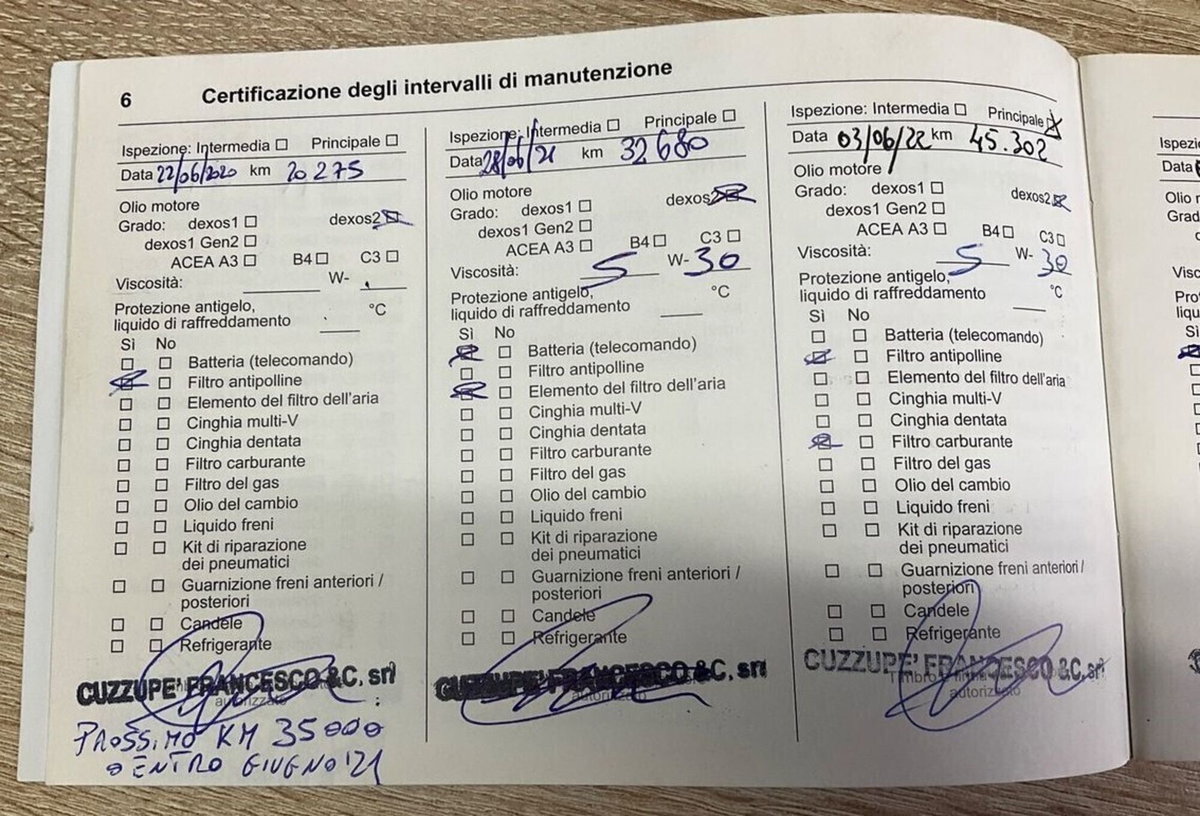 6 Certificazione degli intervalli di manutenzione
Ispezione: Intermedia Principale
Data 22/06/2020 km 20 275
Olio motore
Grado: dexos1 dexos2
dexos1 Gen2
ACEA A3 B4 C3
Viscosità: W-
Protezione antigelo,
liquido di raffreddamento °C
Sì No
Batteria (telecomando)
Filtro antipolline
Elemento del filtro dell'aria
Cinghia multi-V
Cinghia dentata
Filtro carburante
Filtro del gas
Olio del cambio
Liquido freni
Kit di riparazione
dei pneumatici
Guarnizione freni anteriori /
posteriori
Candele
Refrigerante
CUZZUPE' FRANCESCO &C. srl
autorizzato
PROSSIMO KM 35000
ENTRO GIUGNO '21
Ispezione: Intermedia Principale
Data 28/06/21 km 32680
Olio motore
Grado: dexos1 dexos2
dexos1 Gen2
ACEA A3 B4 C3
Viscosità: 5 W-30
Protezione antigelo,
liquido di raffreddamento °C
Sì No
Batteria (telecomando)
Filtro antipolline
Elemento del filtro dell'aria
Cinghia multi-V
Cinghia dentata
Filtro carburante
Filtro del gas
Olio del cambio
Liquido freni
Kit di riparazione
dei pneumatici
Guarnizione freni anteriori /
posteriori
Candele
Refrigerante
CUZZUPE' FRANCESCO &C. srl
autorizzato
Ispezione: Intermedia Principale
Data 03/06/22 km 45.302
Olio motore
Grado: dexos1 dexos2
dexos1 Gen2
ACEA A3 B4 C3
Viscosità: 5 W-30
Protezione antigelo,
liquido di raffreddamento °C
Sì No
Batteria (telecomando)
Filtro antipolline
Elemento del filtro dell'aria
Cinghia multi-V
Cinghia dentata
Filtro carburante
Filtro del gas
Olio del cambio
Liquido freni
Kit di riparazione
dei pneumatici
Guarnizione freni anteriori /
posteriori
Candele
Refrigerante
CUZZUPE' FRANCESCO &C. srl
autorizzato